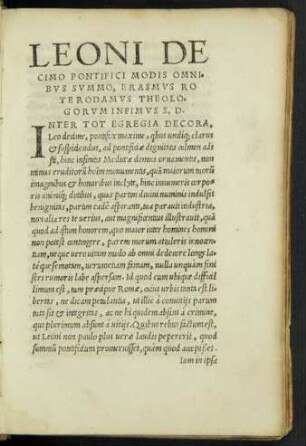 LEONI DE
CIMO PONTIFICI MODIS OMNI
BVS SVMMO, ERASMVS RO
TERODAMVS THEOLO-
GORVM INFIMVS S. D.
INTER TOT EGREGIA DECORA,
Leo decime, pontifex maxime, quibus undiq; clarus
& suspiciendus, ad pontificiæ dignitatis culmen adi
sti, hinc infinitis Mediceæ domus ornamentis, non
minus eruditorum hominum monumentis, quàm maiorum tuorū
imaginibus & honoribus inclytæ, hinc innumeris corporis
animiq; dotibus, quas partim diuini numinis indulsit
benignitas, partim eadē aspirante, tua parauit industria,
non alia res te uerius, aut magnificentius illustrauit, quàm
quod ad istum honorem, quo maior inter homines homini
non potest contingere, parem morum attuleris innocentiam,
neque uero uitam modo ab omni dedecore longe la-
téque semotam, uerumetiam famam, nulla unquàm sini
stri rumoris labe aspersam. Id quod cum ubique difficil
limum est, tum præcipue Romæ, cuius urbis tanta est li
bertas, ne dicam petulantia, ut illic à conuitijs parum
tuti sit & integritas, ac ne hi quidem absint à crimine,
qui plurimum absunt à uitijs. Quibus rebus factum est,
ut Leoni non paulo plus ueræ laudis pepererit, quod
summū pontificium promeruisset, quàm quod accepisset.
Iam in ipsa